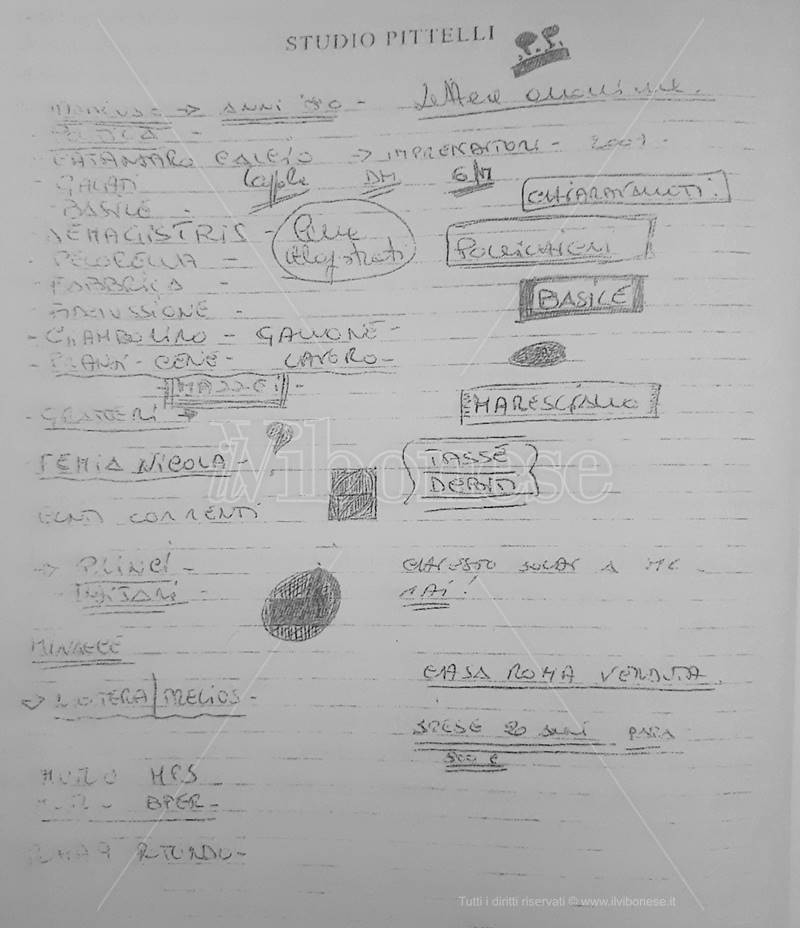 STUDIO PITTELLI
ANNI '80 - Lettere anonime.
CATANZARO CALCIO → IMPRENDITORI - 2001.
- GALATI DM G/M
CHIARAVALLOTI.
BASILE -
DEMAGISTRIS - Cene Magistrati
PECORELLA -
FABBRICA -
BASILE
ADDUSSIONE -
- CIAMBOLINO - GALLONE -
- PRANZI - CENE - LAVORO -
MASSEI -
MARESCIALLO
- GRATTERI →
FEMIA NICOLA -
TASSE
DEBITI
CONTI CORRENTI
→ PLINCI -
CHIESTO SOLDI A ME -
MAI!
MINACCE
CASA ROMA VENDUTA.
→ LOTERA | PRELIOS -
SPESE 20 PARA
500 €
MUTUO MPS
MUTUO BPER -
ROTONDO -
ilVibonese
Tutti i diritti riservati © www.ilvibonese.it